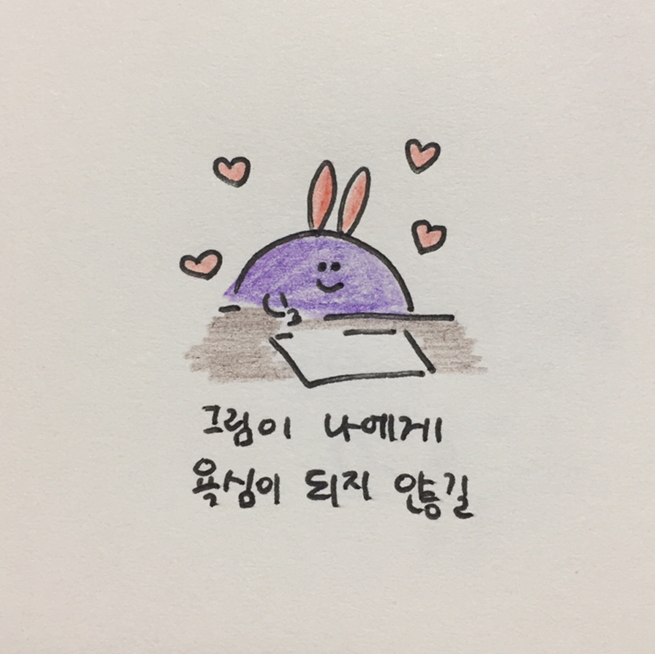 그림이 나에게
욕심이 되지 않길